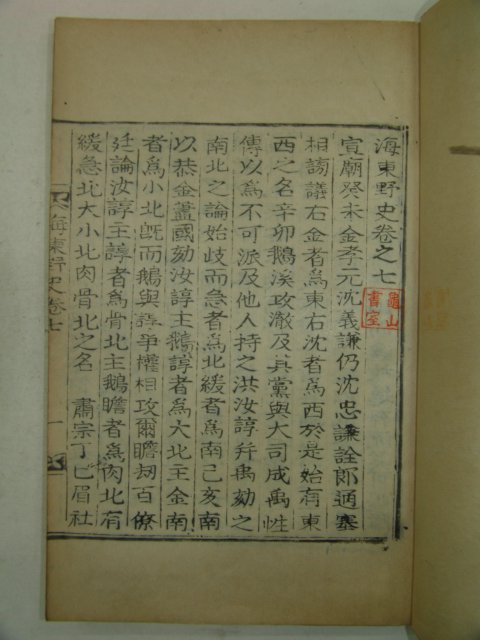 海東野史卷之七
宣廟癸未金孝元沈義謙仍沈忠謙詮郞通塞
相謗議右金者爲東右沈者爲西於是始有東
西之名辛卯鵝溪攻澈及其黨與大司成禹性
傳以爲不可派及他人持之洪汝諄幷禹劾之
南北之論始歧而急者爲北緩者爲南己亥南
以恭金藎國劾汝諄主鵝諄者爲大北主金南
者爲小北旣而鵝與諄爭權相攻爾瞻刼百僚
廷論汝諄主諄者爲骨北主鵝瞻者爲肉北有
緩急北大小北肉骨北之名 肅宗丁巳眉社
海東野史卷七
一
龜山書室